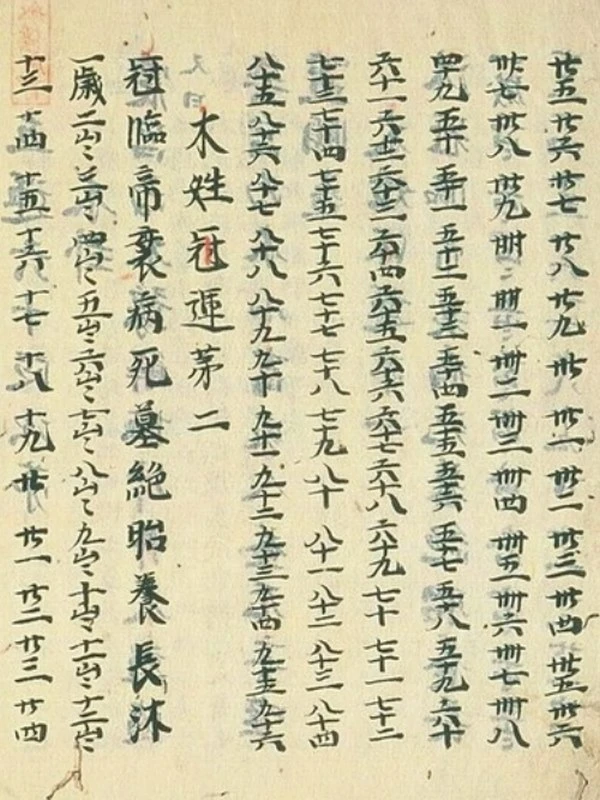 廿五廿六廿七廿八廿九卅卅一卅二卅三卅四卅五卅六
卅七卅八卅九卌卌一卌二卌三卌四卌五卌六卌七卌八
四十九五十五十一五十二五十三五十四五十五五十六五十七五十八五十九六十
六十一六十二六十三六十四六十五六十六六十七六十八六十九七十七十一七十二
七十三七十四七十五七十六七十七七十八七十九八十八十一八十二八十三八十四
八十五八十六八十七八十八八十九九十九十一九十二九十三九十四九十五九十六
木姓冠運茅二
冠臨帝衰病死墓絶胎養長沐
一歳二歳三歳四歳五歳六歳七歳八歳九歳十歳十一歳十二歳
十三十四十五十六十七十八十九廿廿一廿二廿三廿四